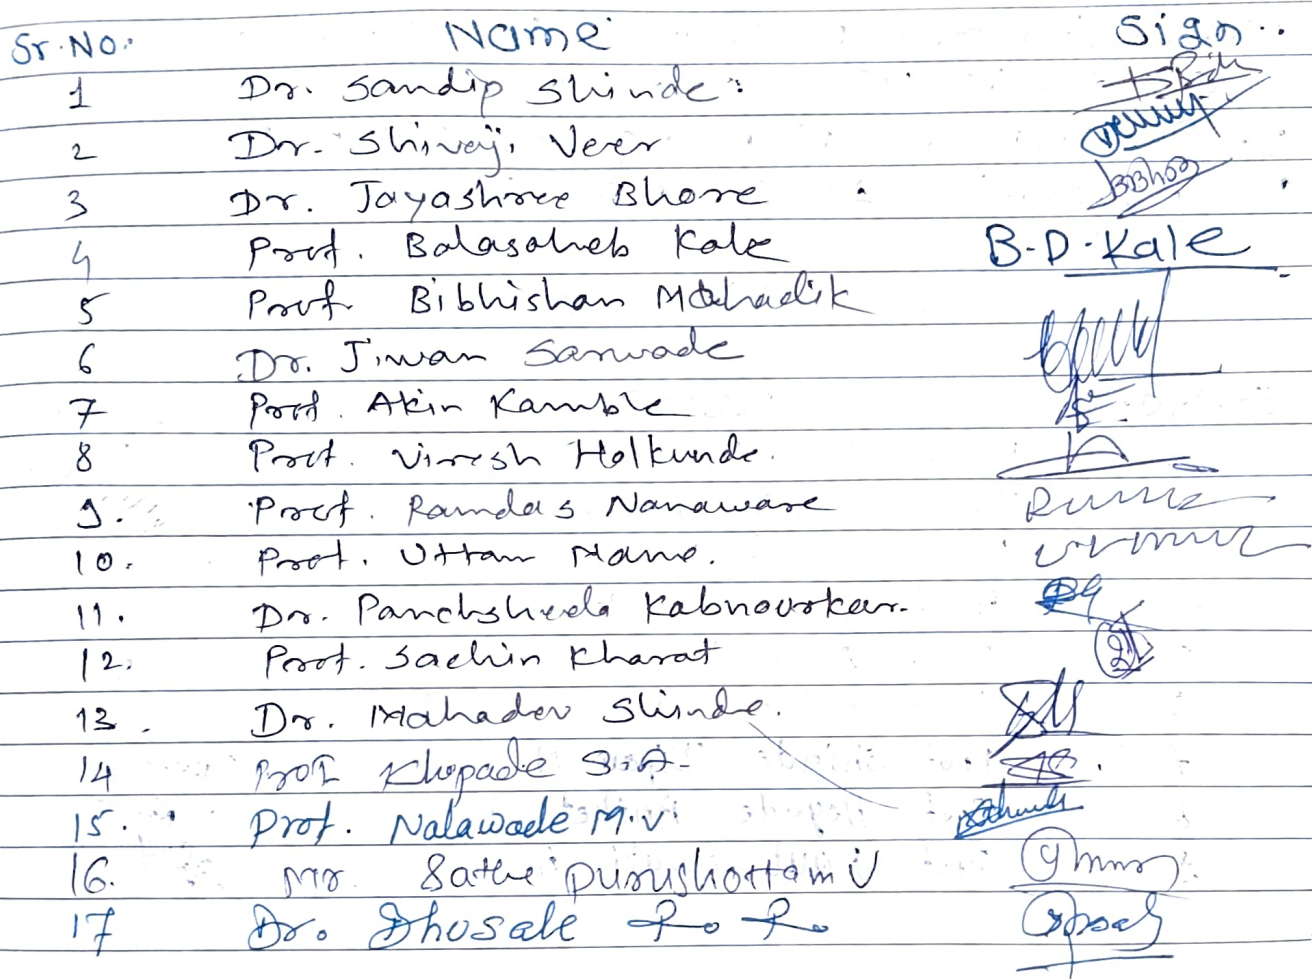 Sr. No. Name Sign..
1 Dr. Sandip Shinde
2 Dr. Shivaji Veer
3 Dr. Jayashree Bhore BBhore
4 Prof. Balasaheb Kale B.D.Kale
5 Prof. Bibhishan Mahadik
6 Dr. Jiwan Sarwade
7 Prof. Akin Kamble
8 Prof. Viresh Holkunde.
9. Prof. Ramdas Nanaware
10. Prof. Uttam Mane.
11. Dr. Panchsheela Kabnourkar.
12. Prof. Sachin Kharat
13. Dr. Mahadev Shinde.
14 Prof Khopade S.A.
15. Prof. Nalawade M.V.
16. Mr Sathe Purushottam U
17 Dr. Bhosale R. R.